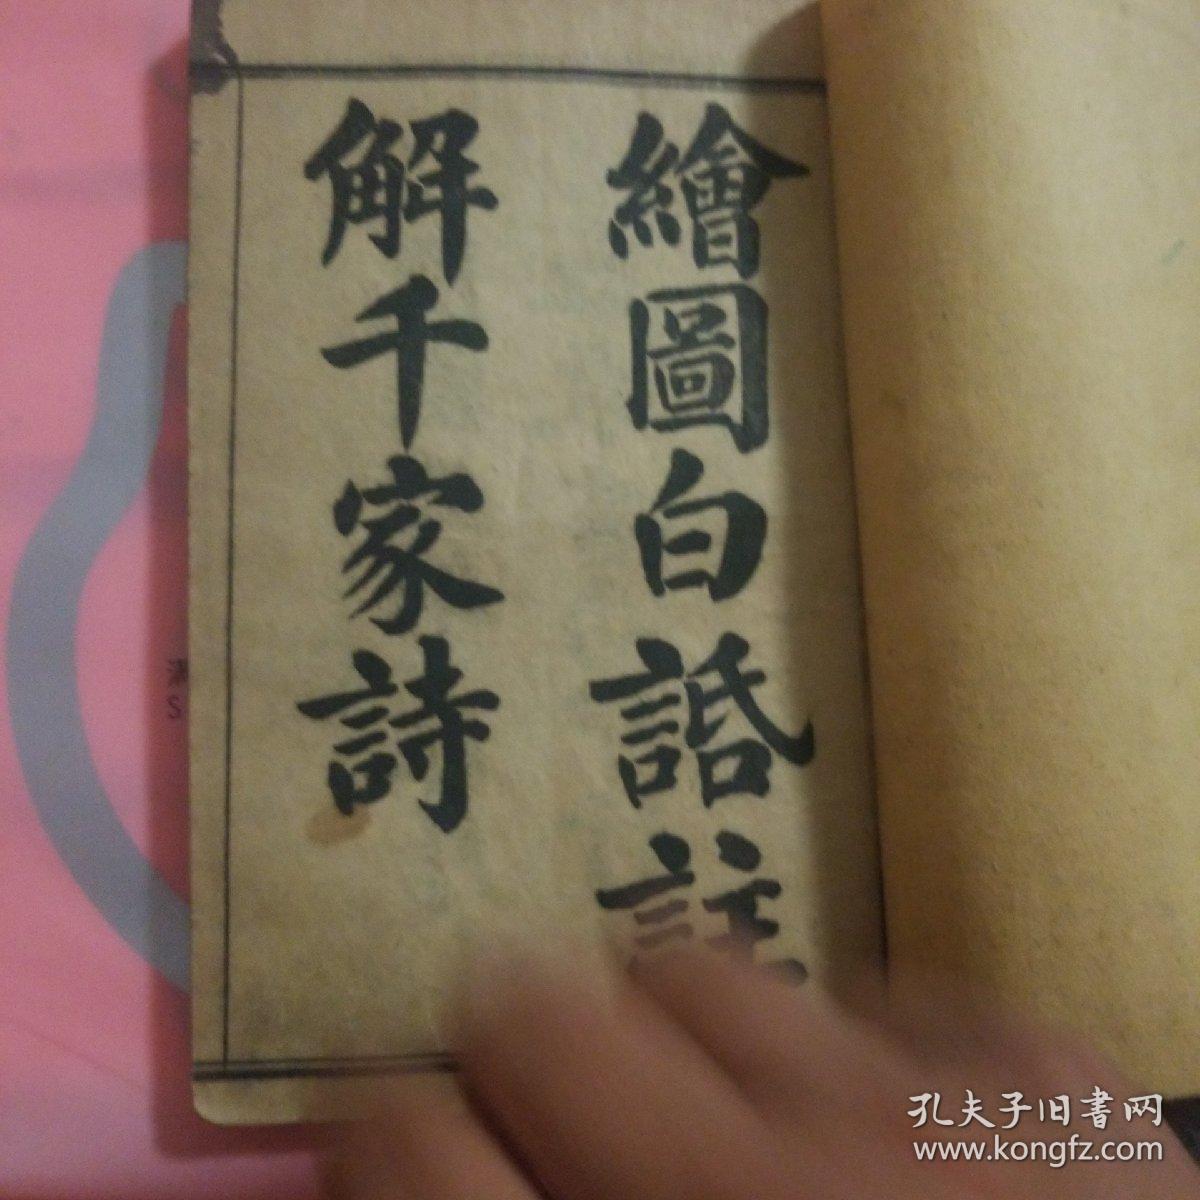 繪圖白話註
解千家詩
孔夫子旧書网
www.kongfz.com